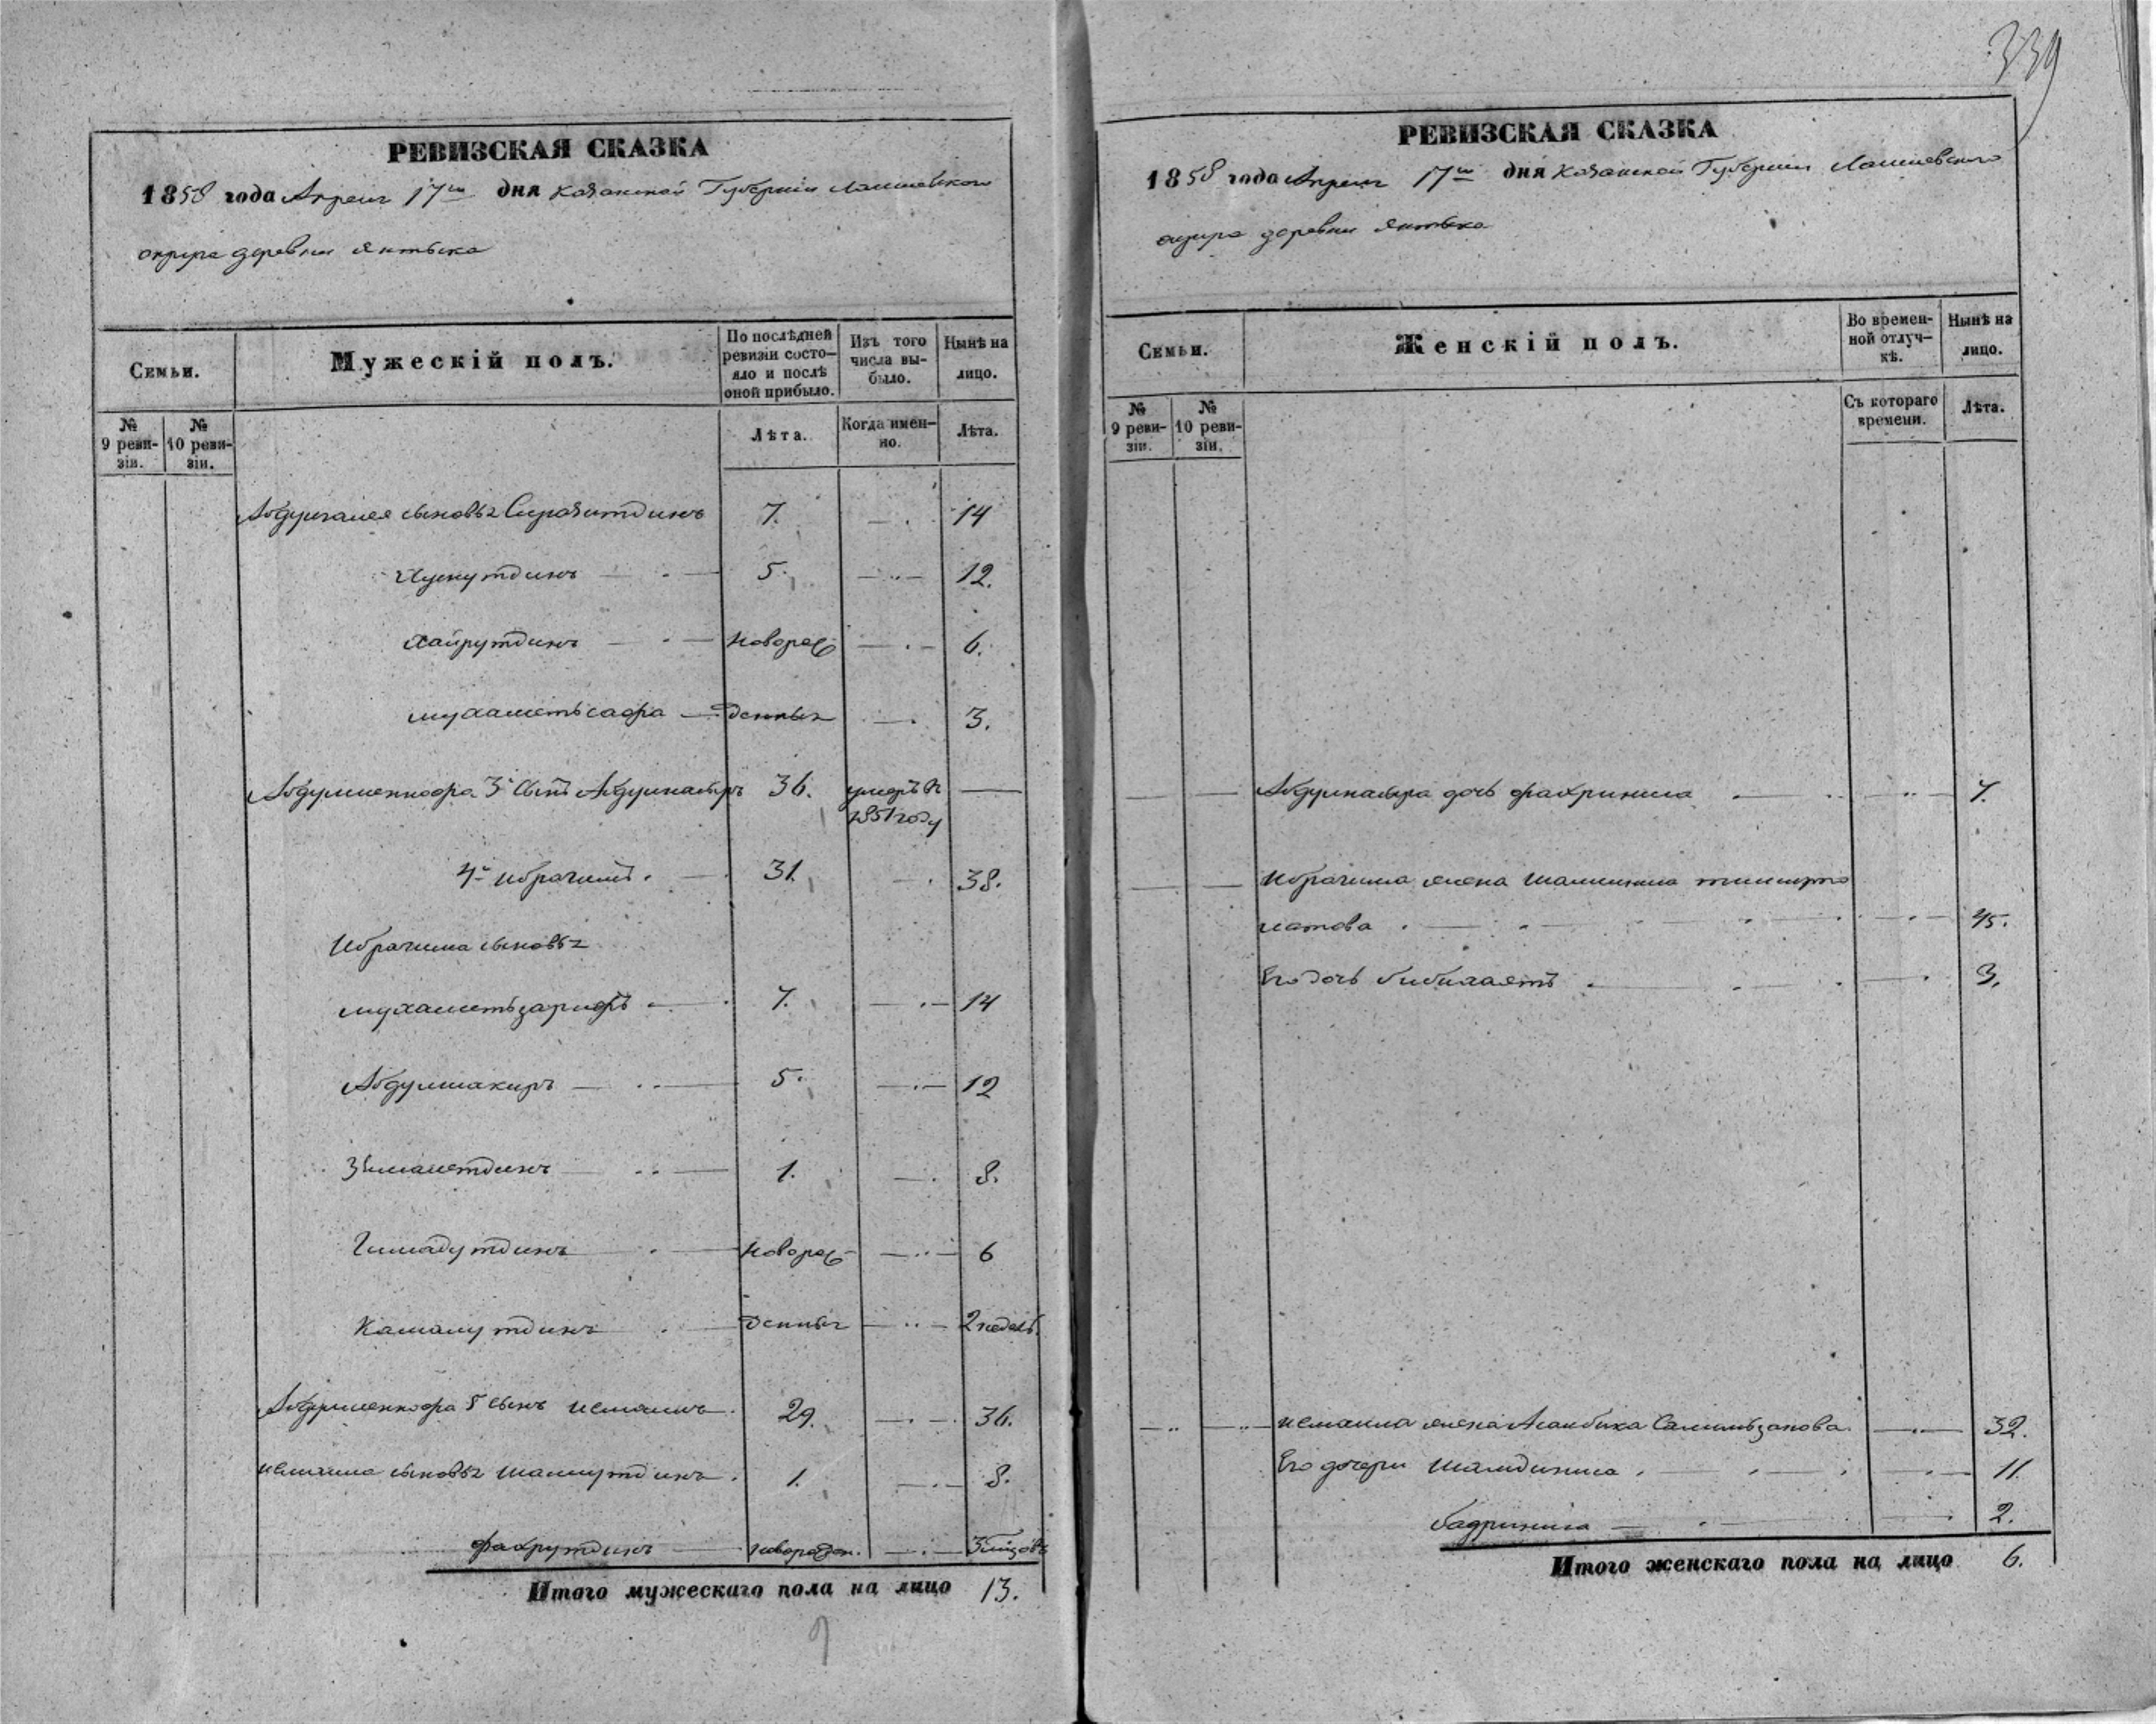 339
РЕВИЗСКАЯ СКАЗКА
1858 года Апреля 17го дня Казанской Губернии Лаишевского
округа деревни Янтыка
Семьи.
Мужескій полъ.
По послѣдней ревизіи состояло и послѣ оной прибыло.
Изъ того числа выбыло.
Нынѣ на лицо.
№ 9 ревизіи.
№ 10 ревизіи.
Лѣта.
Когда именно.
Лѣта.
Абдулгалея сыновья Сиразитдинъ 7. 14
5. 12.
Хайрутдинъ новорож 6.
Мухаметьсафа денныя 3.
Абдулменнафа 3й сынъ Абдулнасыръ 36. умеръ въ 1851 году
4й Ибрагимъ. 31. 38.
Ибрагима сыновья
Мухаметьзарифъ 7. 14
Абдулшакиръ 5. 12
1. 8.
Гимадутдинъ новорож 6
Камалутдинъ денныя 2 недель.
Абдулменнафа 5 сынъ Исмаилъ 29. 36.
Исмаила сыновья Шамсутдинъ. 1. 8.
Фахрутдинъ новорожден. 3 месяцовъ
Итого мужескаго пола на лицо 13.
РЕВИЗСКАЯ СКАЗКА
1858 года Апреля 17го дня Казанской Губернии Лаишевского
округа деревни Янтыка
Семьи.
Женскій полъ.
Во временной отлучкѣ.
Нынѣ на лицо.
№ 9 ревизіи.
№ 10 ревизіи.
Съ котораго времени.
Лѣта.
Абдулнасыра дочь Фахриниса 7.
Ибрагима жена
45.
Его дочь Бибихаятъ 3.
Исмаила жена Асанбика Салимьзанова 32.
Его дочери Шамдиниса 11.
Бадриниса 2.
Итого женскаго пола на лицо 6.